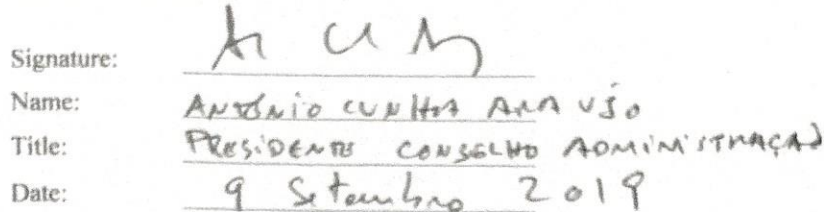 Signature:
Name: ANTÓNIO CUNHA ARAUJO
Title: PRESIDENTE CONSELHO ADMINISTRAÇAO
Date: 9 Setembro 2019